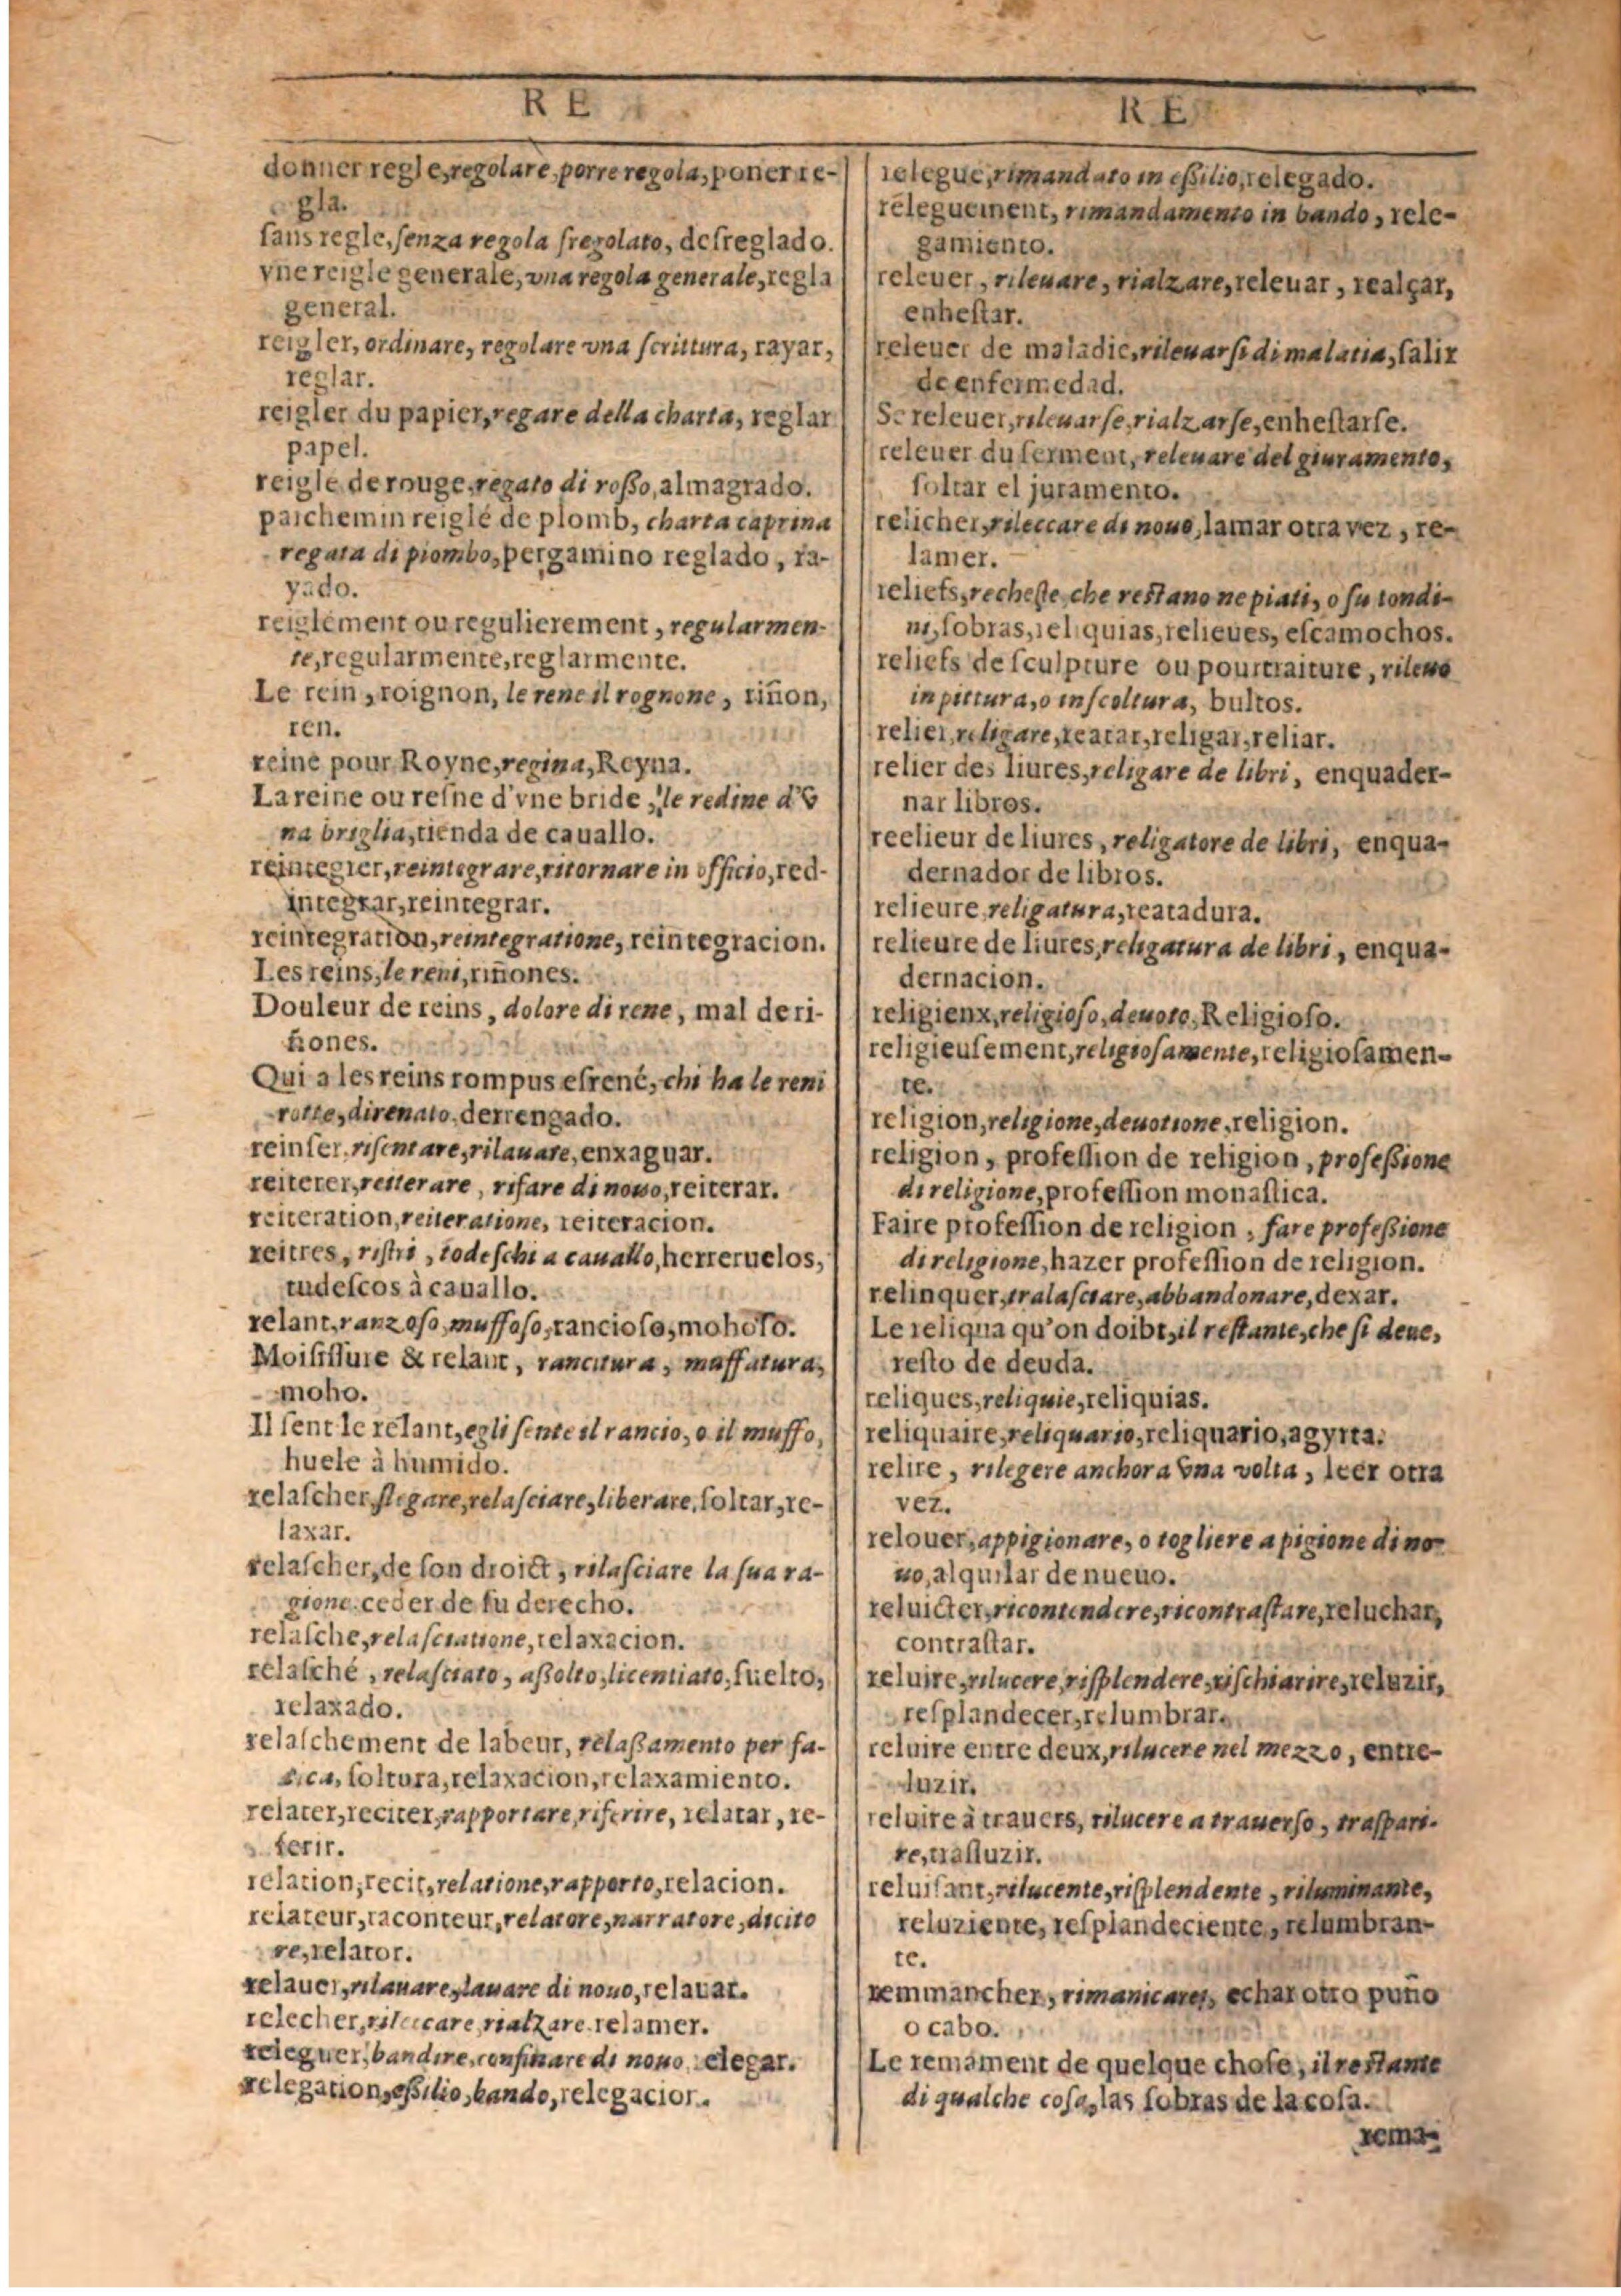 RE
donner regle, regolare, porre regola, poner re-
gla.
sans regle, senza regola sregolato, desreglado.
vne reigle generale, vna regola generale, regla
general.
reigler, ordinare, regolare vna scrittura, rayar,
reglar.
reigler du papier, regare della charta, reglar
papel.
reigle de rouge, regato di rosso, almagrado.
parchemin reiglé de plomb, charta caprina
regata di piombo, pergamino reglado, ra-
yado.
reiglement ou regulierement, regularmen-
te, regularmente, reglarmente.
Le rein, roignon, le rene il rognone, riñon,
ren.
reine pour Royne, regina, Reyna.
La reine ou resne d'vne bride, le redine d'v
na briglia, rienda de cauallo.
reintegrer, reintegrare, ritornare in officio, red-
integrar, reintegrar.
reintegration, reintegratione, reintegracion.
Les reins, le reni, riñones.
Douleur de reins, dolore di rene, mal de ri-
ñones.
Qui a les reins rompus esrené, chi ha le reni
rotte, direnato, derrengado.
reinser, risentare, rilauare, enxaguar.
reiterer, reiterare, rifare di nouo, reiterar.
reiteration, reiteratione, reiteracion.
reitres, ristri, todeschi a cauallo, herreruelos,
tudescos à cauallo.
relant, ranzoso, muffoso, rancioso, mohoso.
Moisissure & relant, rancitura, muffatura,
moho.
Il sent le relant, egli sente il rancio, o il muffo,
huele à humido.
relascher, slegare, relasciare, liberare, soltar, re-
laxar.
relascher, de son droict, rilasciare la sua ra-
gione, ceder de su derecho.
relasche, relasciatione, relaxacion.
relasché, relasciato, assolto, licentiato, suelto,
relaxado.
relaschement de labeur, relassamento per fa-
tica, soltura, relaxacion, relaxamiento.
relater, reciter, rapportare, riferire, relatar, re-
ferir.
relation, recit, relatione, rapporto, relacion.
relateur, raconteur, relatore, narratore, dicito
re, relator.
relauer, rilauare, lauare di nouo, relauar.
relecher, rileccare, rialzare. relamer.
releguer, bandire, confinare di nouo, elegar.
relegation, essilio, bando, relegacior.
RE
relegue, rimandato in essilio, relegado.
releguement, rimandamento in bando, rele-
gamiento.
releuer, rileuare, rialzare, releuar, realçar,
enhestar.
releuer de maladie, rileuarsi di malatia, salir
de enfermedad.
Se releuer, rileuarse, rialzarse, enhestarse.
releuer du serment, releuare del giuramento,
soltar el juramento.
relicher, rileccare di nouo, lamar otra vez, re-
lamer.
reliefs, recheste che restano ne piati, o su tondi-
ni, sobras, reliquias, relieues, escamochos.
reliefs de sculpture ou pourtraiture, rileuo
in pittura, o in scoltura, bultos.
relier, religare, reatar, religar, reliar.
relier des liures, religare de libri, enquader-
nar libros.
reelieur de liures, religatore de libri, enqua-
dernador de libros.
relieure, religatura, reatadura.
relieure de liures, religatura de libri, enqua-
dernacion.
religienx, religioso, deuoto, Religioso.
religieusement, religiosamente, religiosamen-
te.
religion, religione, deuotione, religion.
religion, profession de religion, professione
di religione, profession monastica.
Faire profession de religion, fare professione
di religione, hazer profession de religion.
relinquer, tralasciare, abbandonare, dexar.
Le reliqua qu'on doibt, il restante, che si deue,
resto de deuda.
reliques, reliquie, reliquias.
reliquaire, reliquario, reliquario, agyrta.
relire, rilegere anchora vna volta, leer otra
vez.
relouer, appigionare, o togliere a pigione di no-
uo, alquilar de nueuo.
reluicter, ricontendere, ricontrastare, reluchar,
contrastar.
reluire, rilucere, risplendere, rischiarire, reluzir,
resplandecer, relumbrar.
reluire entre deux, rilucere nel mezzo, entre-
luzir.
reluire à trauers, rilucere a trauerso, traspari-
re, trasluzir.
reluisant, rilucente, risplendente, riluminante,
reluziente, resplandeciente, relumbran-
te.
remmancher, rimanicare, echar otro puño
o cabo.
Le remament de quelque chose, il restante
di qualche cosa, las sobras de la cosa.
rema-